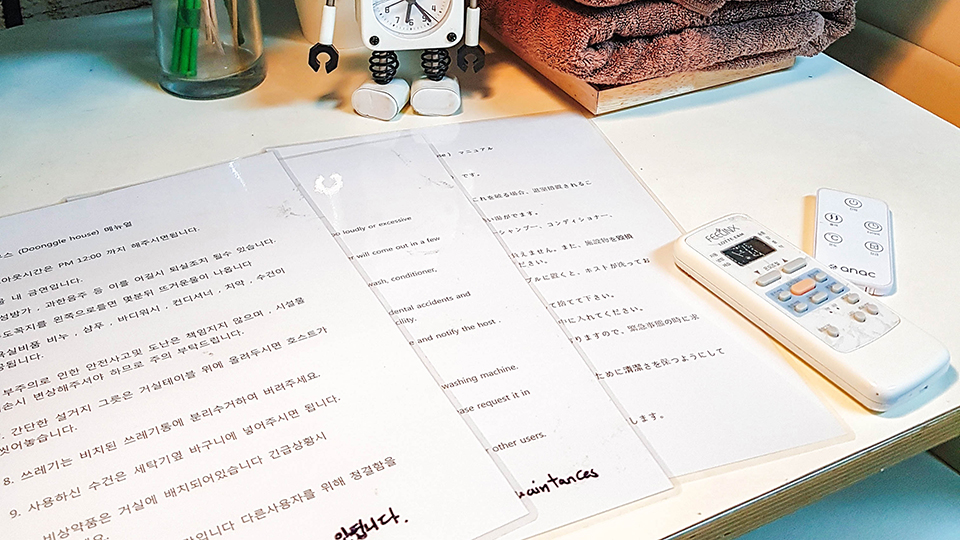 (Doonggle house) 메뉴얼
아웃시간은 PM 12:00 까지 해주시면됩니다.
내 금연입니다.
성방가 , 과한음주 등 이를 어길시 퇴실조치 될수 있습니다.
도꼭지를 왼쪽으로틀면 몇분뒤 뜨거운물이 나옵니다
욕실비품 비누 , 샴푸 , 바디워시 , 컨디셔너 , 치약 , 수건이
부주의로 인한 안전사고및 도난은 책임지지 않으며 , 시설물
손시 변상해주셔야 하므로 주의 부탁드립니다.
간단한 설거지 그릇은 거실테이블 위에 올려두시면 호스트가
씻어놓습니다.
8. 쓰레기는 비치된 쓰레기통에 분리수거하여 버려주세요.
9. 사용하신 수건은 세탁기옆 바구니에 넣어주시면 됩니다.
비상약품은 거실에 배치되어있습니다 긴급상황시
다른사용자를 위해 청결함을
안됩니다.
loudly or excessive
will come out in a few
wash, conditioner,
dental accidents and
cility.
e and notify the host .
washing machine.
ase request it in
other users.
aintances
マニュアル
です。
これを破る場合、退室措置されるこ
い面がでます。
シャンプー、コンディショナー、
えません。また、施設物を毀損
ださい。
ブルに設くと、ホストが洗ってお
て捨てて下さい。
中に入れてください。
りますので、緊急事態の時に求
ために清潔さを保つようにして
します。
FEELINX
anac